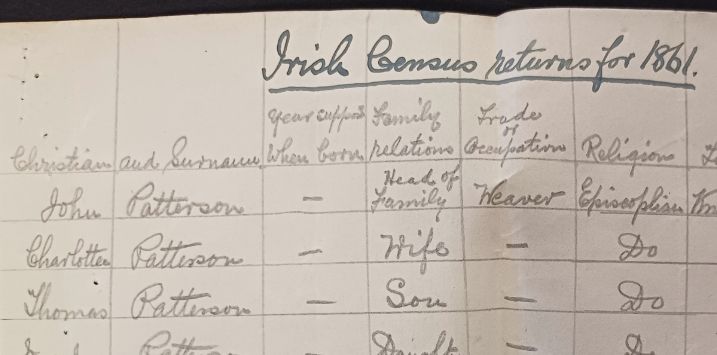 Irish Census returns for 1861.
Christian and Surname Year suppos when born Family relations Trade or Occupation Religion
John Patterson — Head of Family Weaver Episcoplian
Charlotte Patterson — Wife — Do
Thomas Patterson — Son — Do